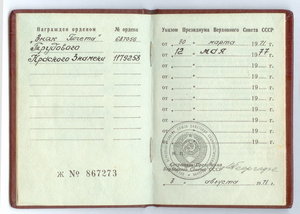 Награжден орденом
№ ордена
"Знак Почета"
Трудового
Красного Знамени 1179253
Ж № 867273
Указом Президиума Верховного Совета СССР
от 30 марта 1971 г.
от 12 мая 1977 г.
от 19 г.
от 19 г.
от 19 г.
от 19 г.
от 19 г.
от 19 г.
Секретарь Президиума
Верховного Совета
3 августа 1971 г.